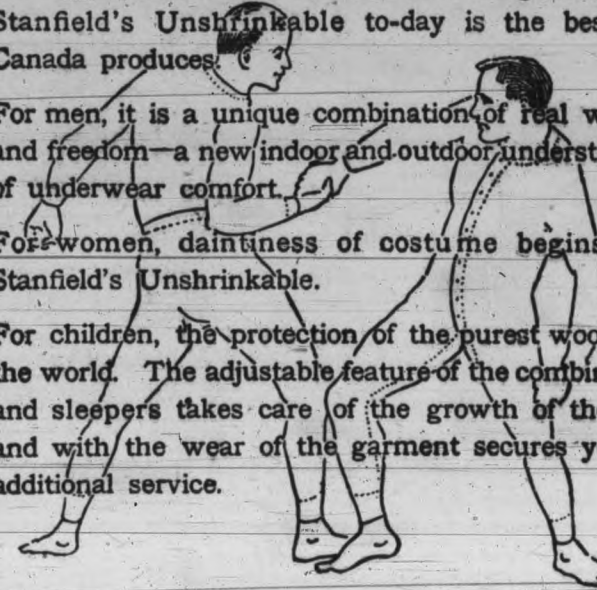 Stanfield's Unshrinkable to-day is the bes
Canada produces.
For men, it is a unique combination of real w
and freedom—a new indoor and outdoor underst
of underwear comfort.
For women, daintiness of costume begins
Stanfield's Unshrinkable.
For children, the protection of the purest woo
the world. The adjustable feature of the combin
and sleepers takes care of the growth of th
and with the wear of the garment secures y
additional service.